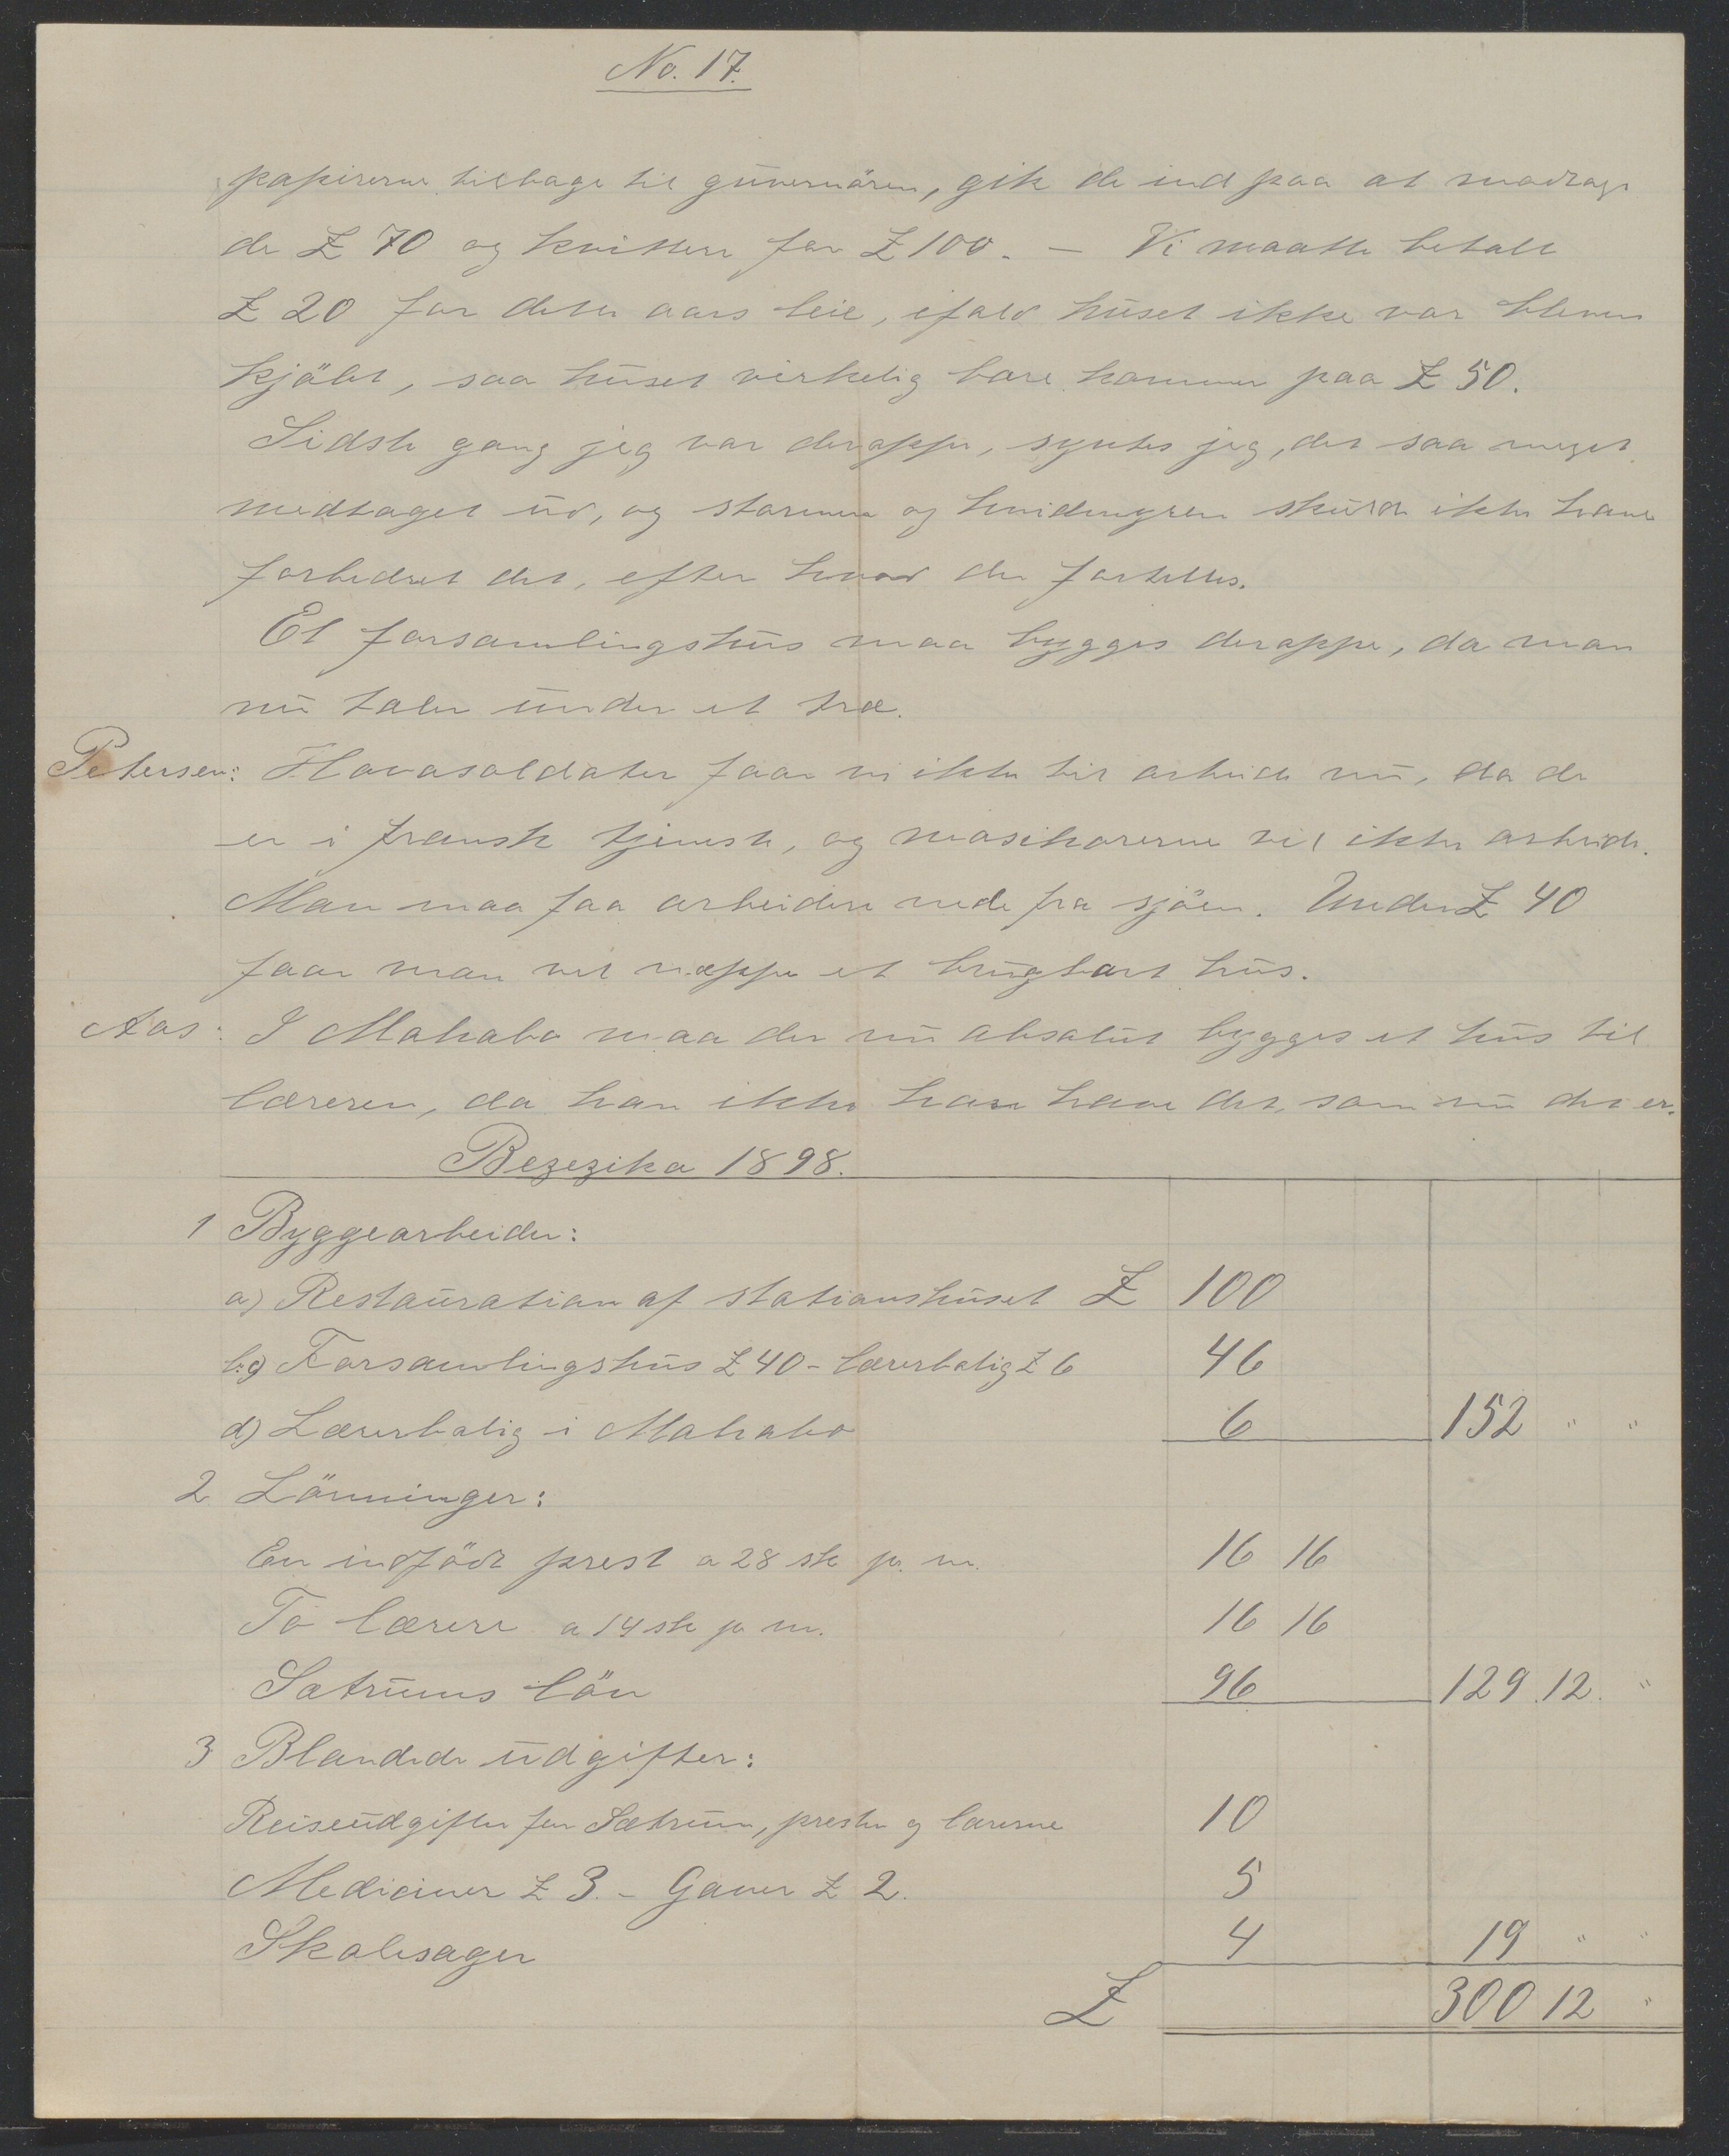 No. 17.
papirerne tilbage til guvernören, gik de ind paa at modtage
de £ 70 og kvittere for £ 100. — Vi maatte betalt
£ 20 for dette aars leie, ifald huset ikke var bleven
kjöbt, saa huset virkelig bare kommer paa £ 50.
Sidste gang jeg var deroppe, syntes jeg, det saa meget
medtaget ud, og stormene og hvidmyren skulde ikke have
forbedret det, efter hvad der fortelles.
Et forsamlingshus maa bygges deroppe, da man
nu taler under et træ.
Petersen: Hovasoldater faar vi ikke til arbeide nu, da de
er i fransk tjeneste, og masikorerne vil ikke arbeide.
Man maa faa arbeidere nede fra sjöen. Under £ 40
faar man vel neppe et brugbart hus.
Aas: I Mahabo maa der nu absolut bygges et hus til
læreren, da han ikke kan have det, som nu det er.
Bezezika 1898.
1 Byggearbeider:
a) Restauration af stationshuset £ 100
b:c) Forsamlingshus £ 40 - lærerbolig £ 6 46
d) Lærerbolig i Mahabo 6 152 " "
2 Lönninger:
En indfödt prest a 28 sh p. m. 16 16
To lærere a 14 sh p m. 16 16
Sætrums lön 96 129 12. "
3 Blandede udgifter:
Reiseudgifter for Sætrum, prester og lærerne 10
Mediciner £ 3. - Gaver £ 2. 5
Skolesager 4 19 " "
£ 300 12 "